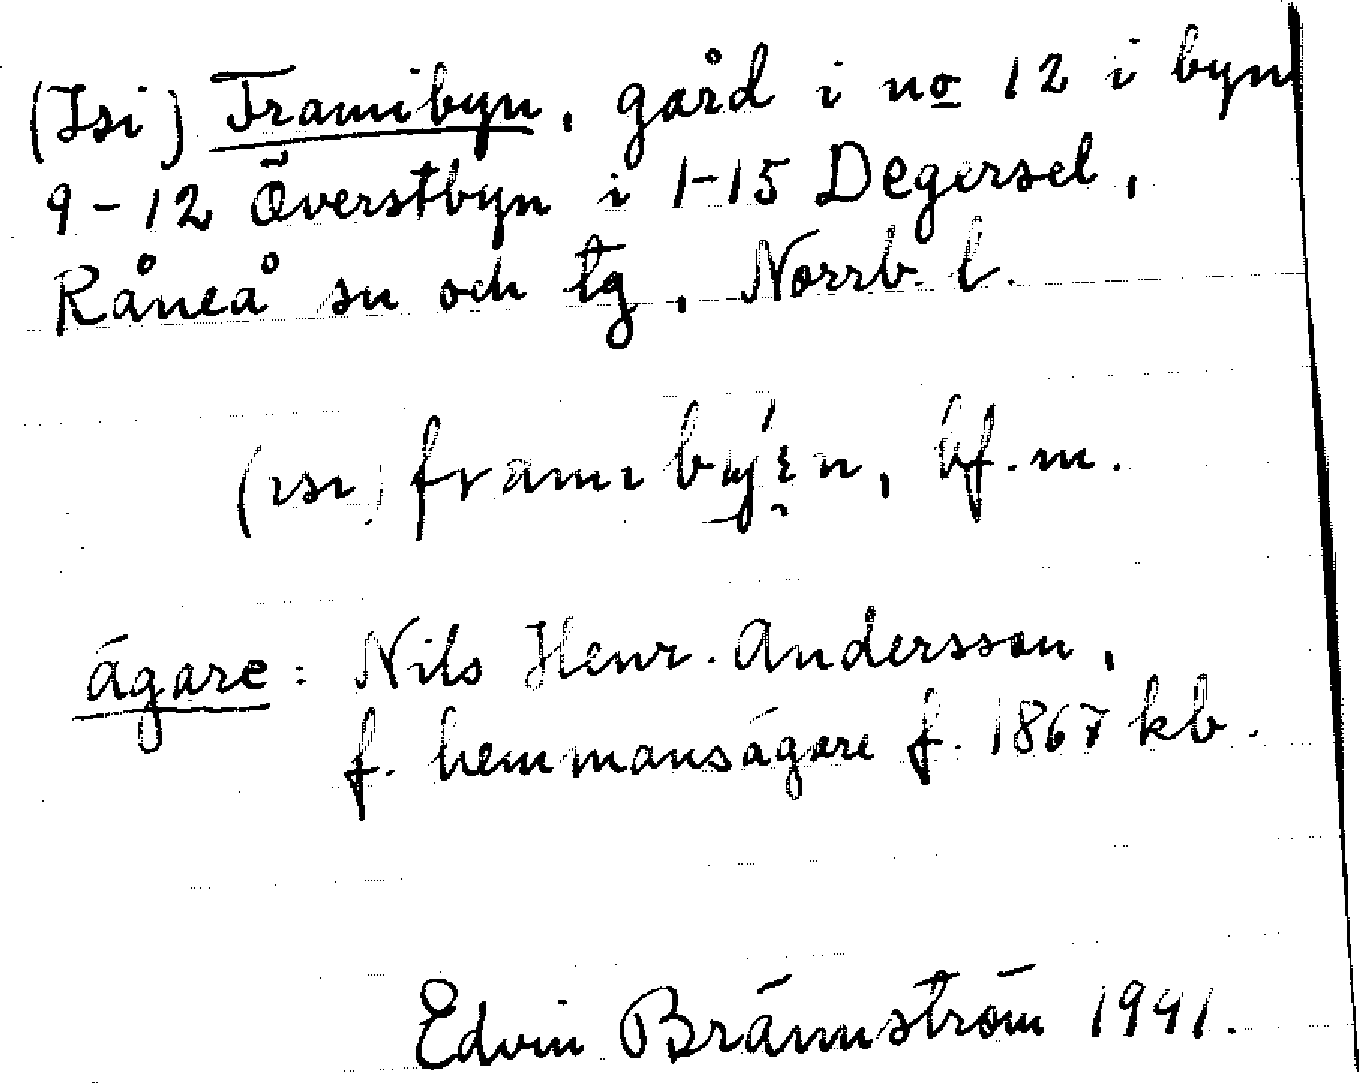 (Isi) Framibyn, gård i no 12 i byn
9-12 Överstbyn i 1-15 Degersel,
Råneå sn och tg, Norrb. l.
(ısı) framı bý̨ɛn, bf. m.
ägare: Nils Henr. Andersson,
f. hemmansägare f. 1867 kb.
Edvin Brännström 1941.